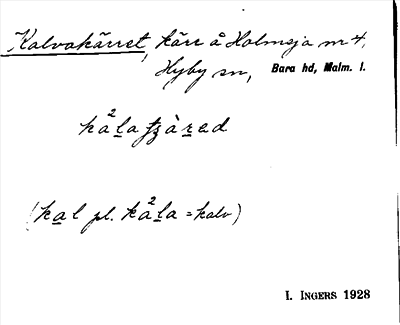 Kalvakärret, kärr å Holmeja nr 4,
Hyby sn, Bara hd, Malm. l.
kå²la tʃʒàred
(kal pl. kå²la = kalv)
I. INGERS 1928